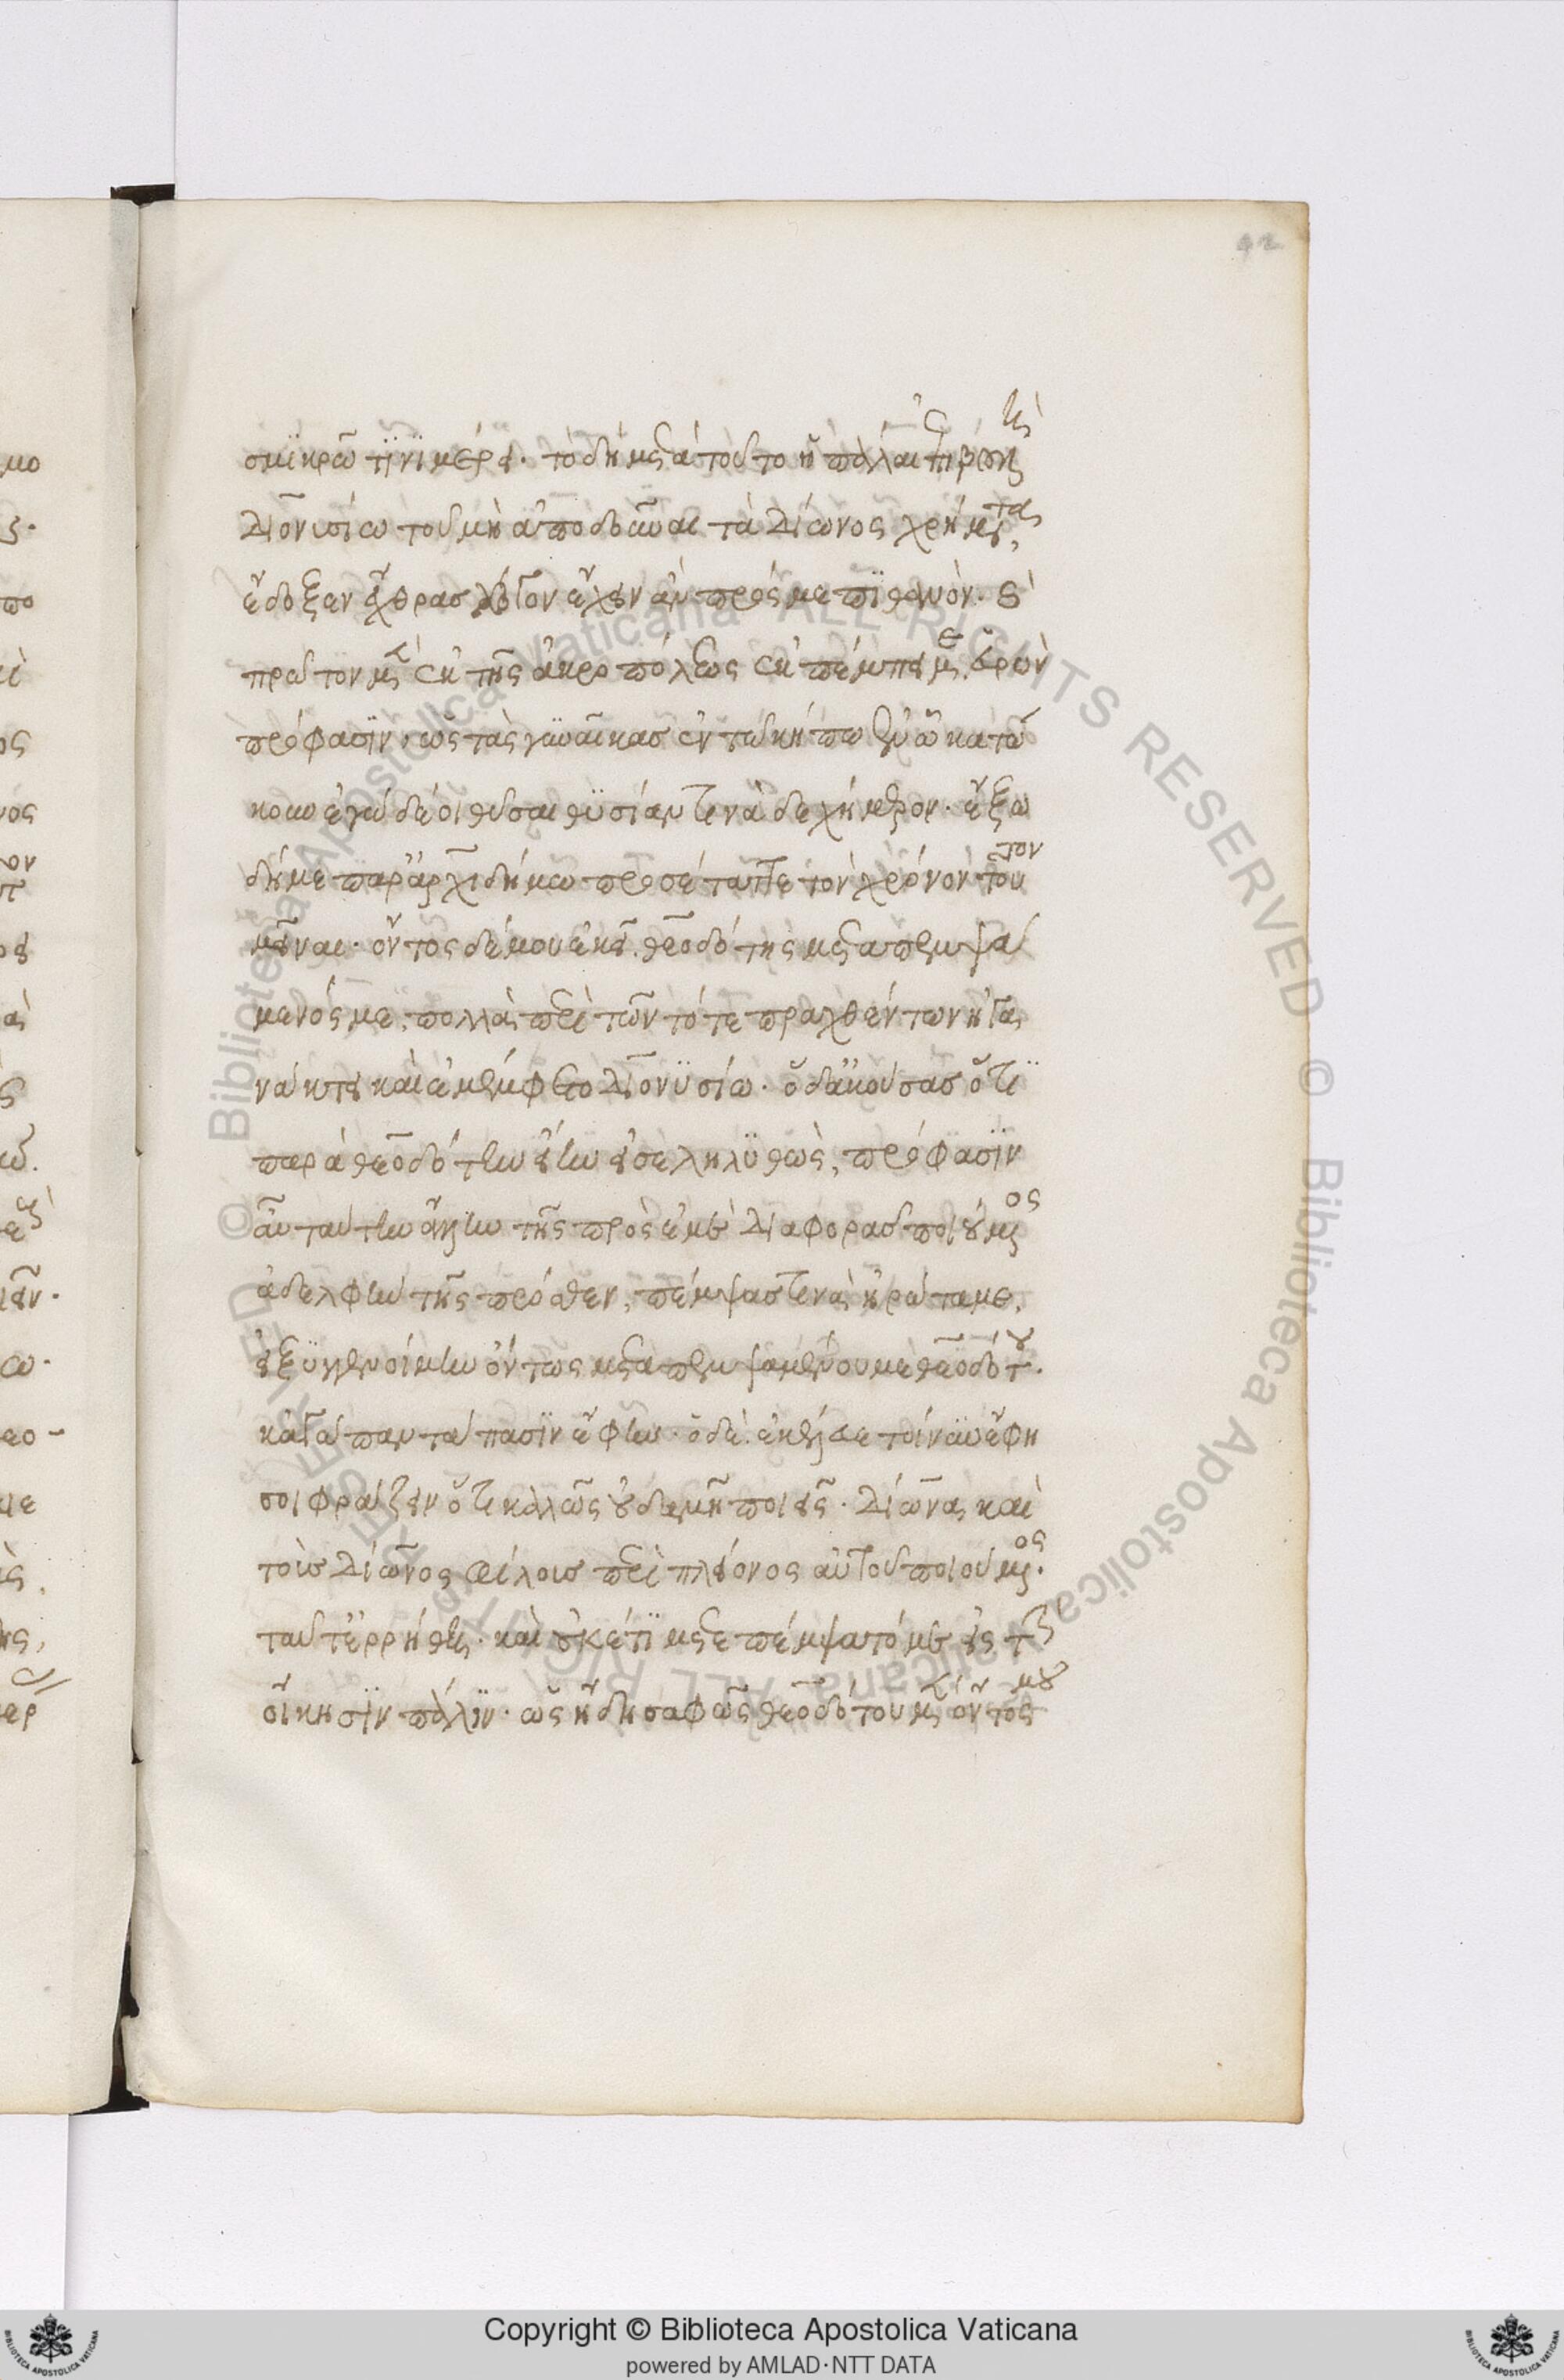 42
σμϊκρῶ τϊνϊ μέρει. τὸ δὴ μετὰ τοῦτο ἡ πάλαι ἐπιβουλὴ
Διονυσίω τοῦ μὴ ἀποδοῦναι τὰ Δίωνος χρήματα,
ἔδοξεν ἔχθρας
ἔχειν ἂν πρός με πϊθανὸν. καὶ
πρῶτον μὲν ἐκ τῆς ἀκροπόλεως ἐκπέμπει με, εὑρὼν
πρόφασϊν, ὡς τὰς γυναῖκασ ἐν τῶ κήπω ἐν ὧ κατώ
κουν ἐγὼ δέοι θῦσαι θϋσίαν τινὰ δεχήμερον. ἔξω
δή με παρ' ἀρχιδήμω προσέταττε τὸν χρόνον τοῦτον
μεῖναι. ὄντος δέ μου ἐκεῖ, θεοδότης μεταπεμψά
μενός με, πολλὰ περὶ τῶν τότε πραχθέντων ἠγα
νάκτει καὶ ἐμέμφετο Διονϋσίω. ὁ δ' ἀκούσας ὅτϊ
παρὰ θεοδότην εἴην εἰσεληλϋθὼς, πρόφασϊν
αὖ ταύτην ἄλλην τῆς πρὸς ἐμὲ διαφορᾶσ ποιούμενος
ἀδελφὴν τῆς πρόσθεν, πέμψας τινὰ ἠρώτα με,
εἰ ξϋγγενοίμην ὄντως μεταπεμψαμένου με θεοδότου.
κἀγὼ παντάπασϊν ἔφην. ὁ δὲ, ἐκέλευε τοίνϋν ἔφη
σοι φράζειν ὅτι καλῶς οὐδαμῆ ποιεῖς. Δίωνας καὶ
τοὺσ Δίωνος φίλουσ περὶ πλείονος αὐτοῦ ποιούμενος.
ταῦτ' ἐρρήθη. καὶ οὐκέτϊ μετεπέμψατό με εἰς τὴν
οἴκησϊν πάλϊν. ὡς ἤδη σαφῶς θεοδότου μὲν ὄντος μου
Copyright © Biblioteca Apostolica Vaticana
powered by AMLAD·NTT DATA